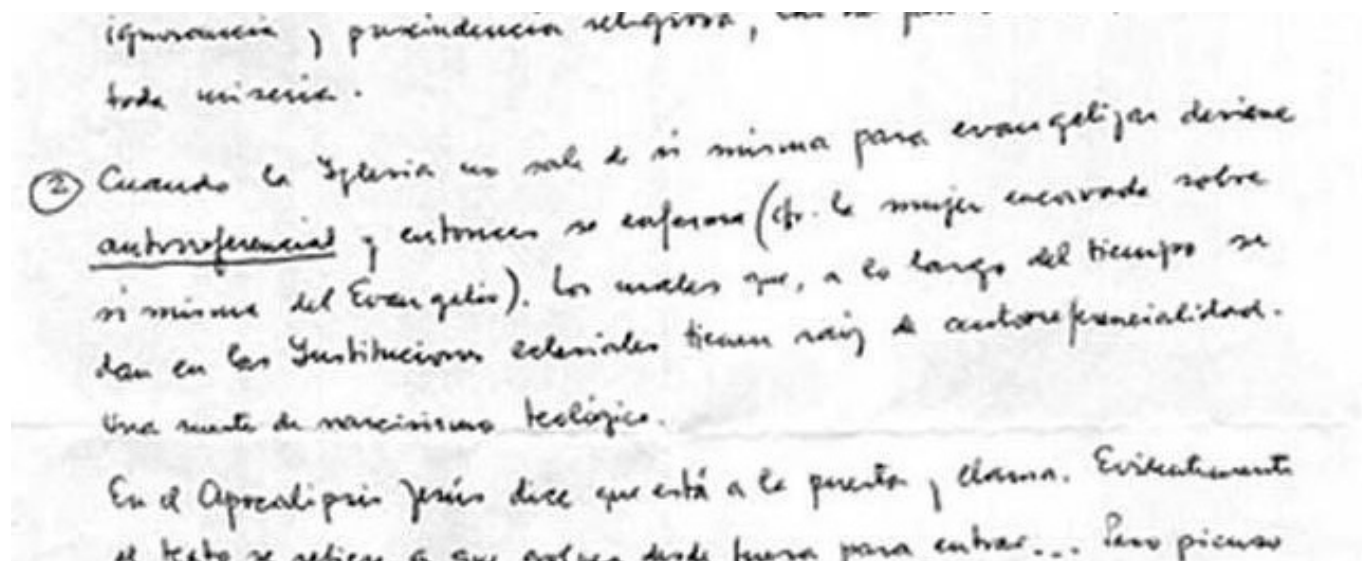 ignorancia y prescindencia religiosa, las de
toda miseria.
② Cuando la Iglesia no sale de sí misma para evangelizar deviene
autorreferencial y entonces se enferma (cfr. la mujer encorvada sobre
sí misma del Evangelio). Los males que, a lo largo del tiempo se
dan en las Instituciones eclesiales tienen raíz de autorreferencialidad.
Una suerte de narcisismo teológico.
En el Apocalipsis Jesús dice que está a la puerta y llama. Evidentemente
el texto se refiere a que golpea desde fuera para entrar... Pero pienso